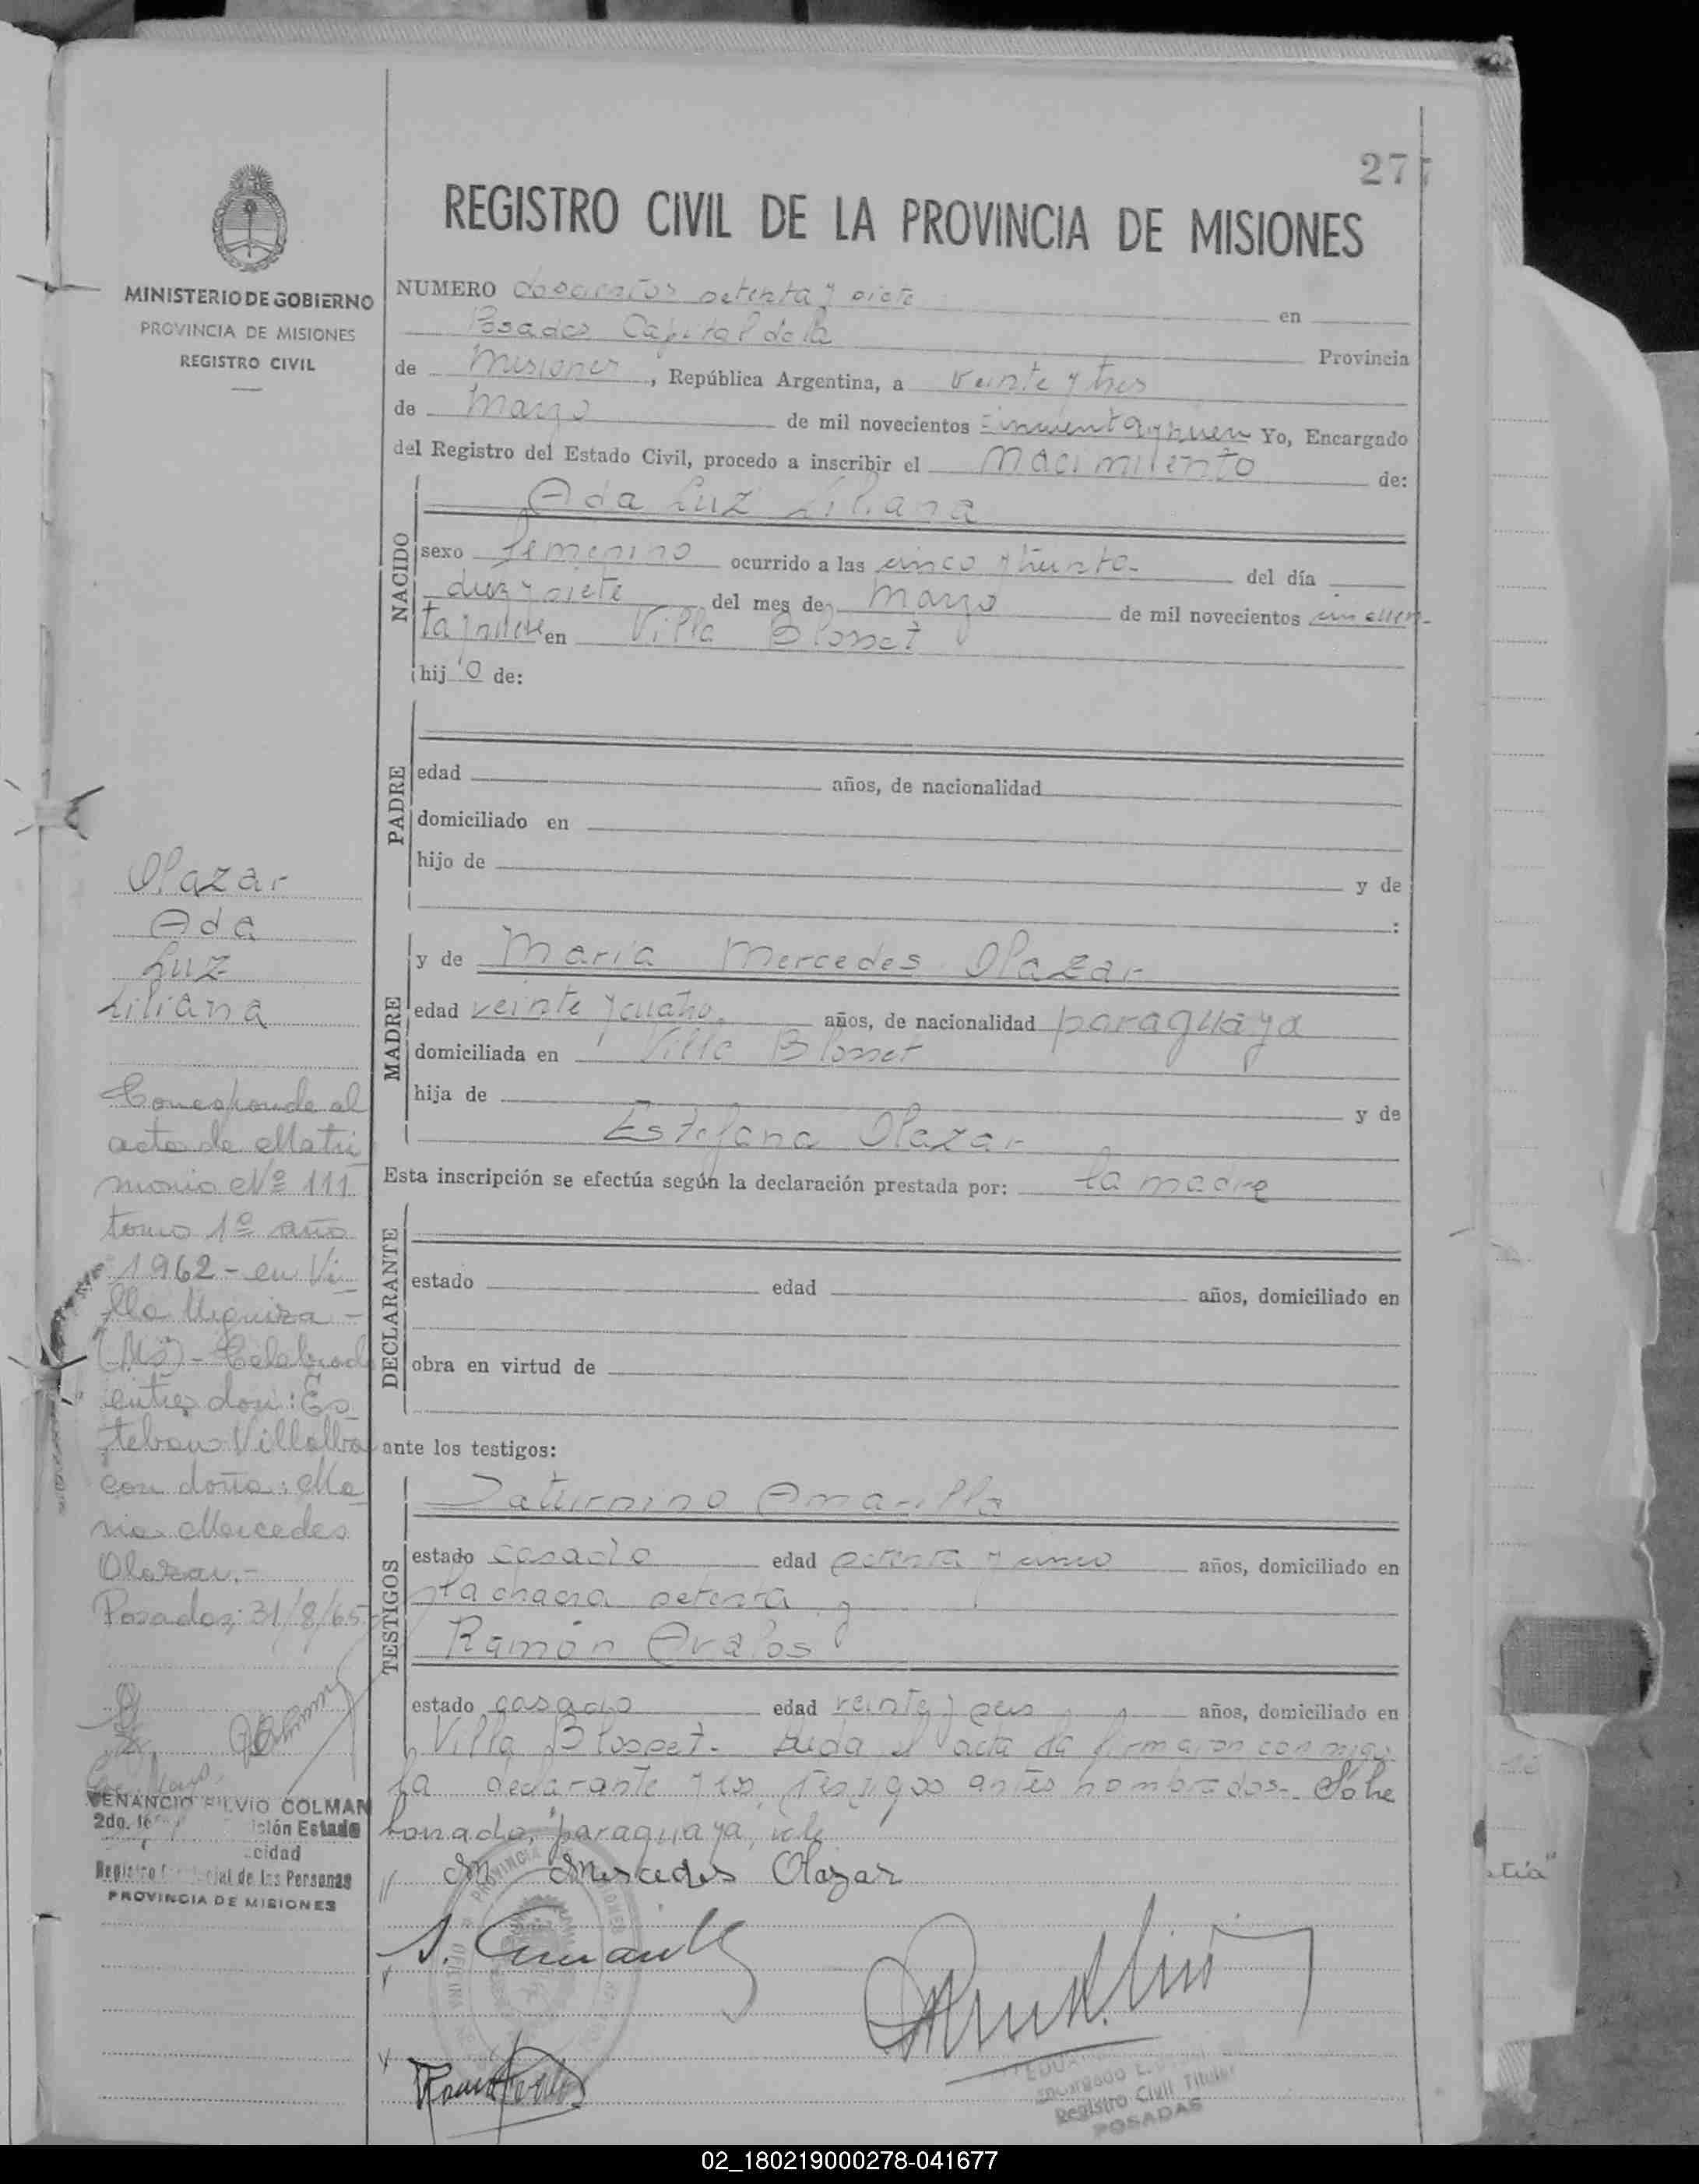 277
REGISTRO CIVIL DE LA PROVINCIA DE MISIONES
MINISTERIO DE GOBIERNO
PROVINCIA DE MISIONES
REGISTRO CIVIL
NUMERO doscientos setenta y siete en
Posadas Capital de la Provincia
de Misiones, República Argentina, a veinte y tres
de marzo de mil novecientos cincuenta y nueve Yo, Encargado
del Registro del Estado Civil, procedo a inscribir el nacimiento de:
NACIDO
Ada Luz Liliana
sexo femenino ocurrido a las cinco y treinta del día
diez y siete del mes de marzo de mil novecientos cincuen-
ta y nueve en Villa Blosset
hij o de:
PADRE
edad años, de nacionalidad
domiciliado en
hijo de y de
:
MADRE
y de María Mercedes Olazar
edad veinte y cuatro años, de nacionalidad paraguaya
domiciliada en Villa Blosset
hija de y de
Estefana Olazar
Esta inscripción se efectúa según la declaración prestada por: la madre
DECLARANTE
estado edad años, domiciliado en
obra en virtud de
ante los testigos:
TESTIGOS
Saturnino Amarilla
estado casado edad setenta y cinco años, domiciliado en
la chacra setenta y
Ramón Avalos
estado casado edad veinte y seis años, domiciliado en
Villa Blosset. Leida el acta la firmaron conmigo
la declarante y los testigos antes nombrados. Sobre
borrado, paraguaya, vale
M Mercedes Olazar
S. Amarilla
Olazar
Ada
Luz
Liliana
Corresponde al
acta de Matri
monio Nº 111
tomo 1º año
1962 - en Vi
lla Urquiza -
(Ms) - Celebrado
entre don: Es
teban Villalba
con doña: Ma
ria Mercedes
Olazar.-
Posadas; 31/8/65
VENANCIO SILVIO COLMAN
2do.
Estado
cidad
Registro de las Personas
PROVINCIA DE MISIONES
PROVINCIA
Encargado
Registro Civil Titular
POSADAS
02_180219000278-041677